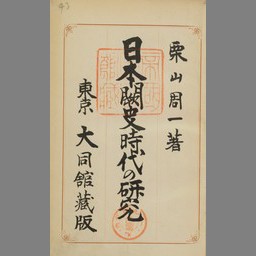 栗山周一著
日本闕史時代の研究
東京 大同館藏版